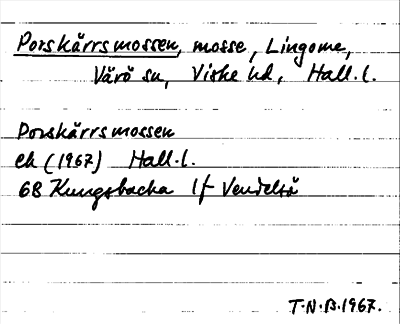 Porskärrsmossen, mosse, Lingome,
Värö sn, Viske hd, Hall. l.
Porskärrsmossen
ek (1967) Hall. l.
68 Kungsbacka 1f Vendelsö
T.N.B. 1967.